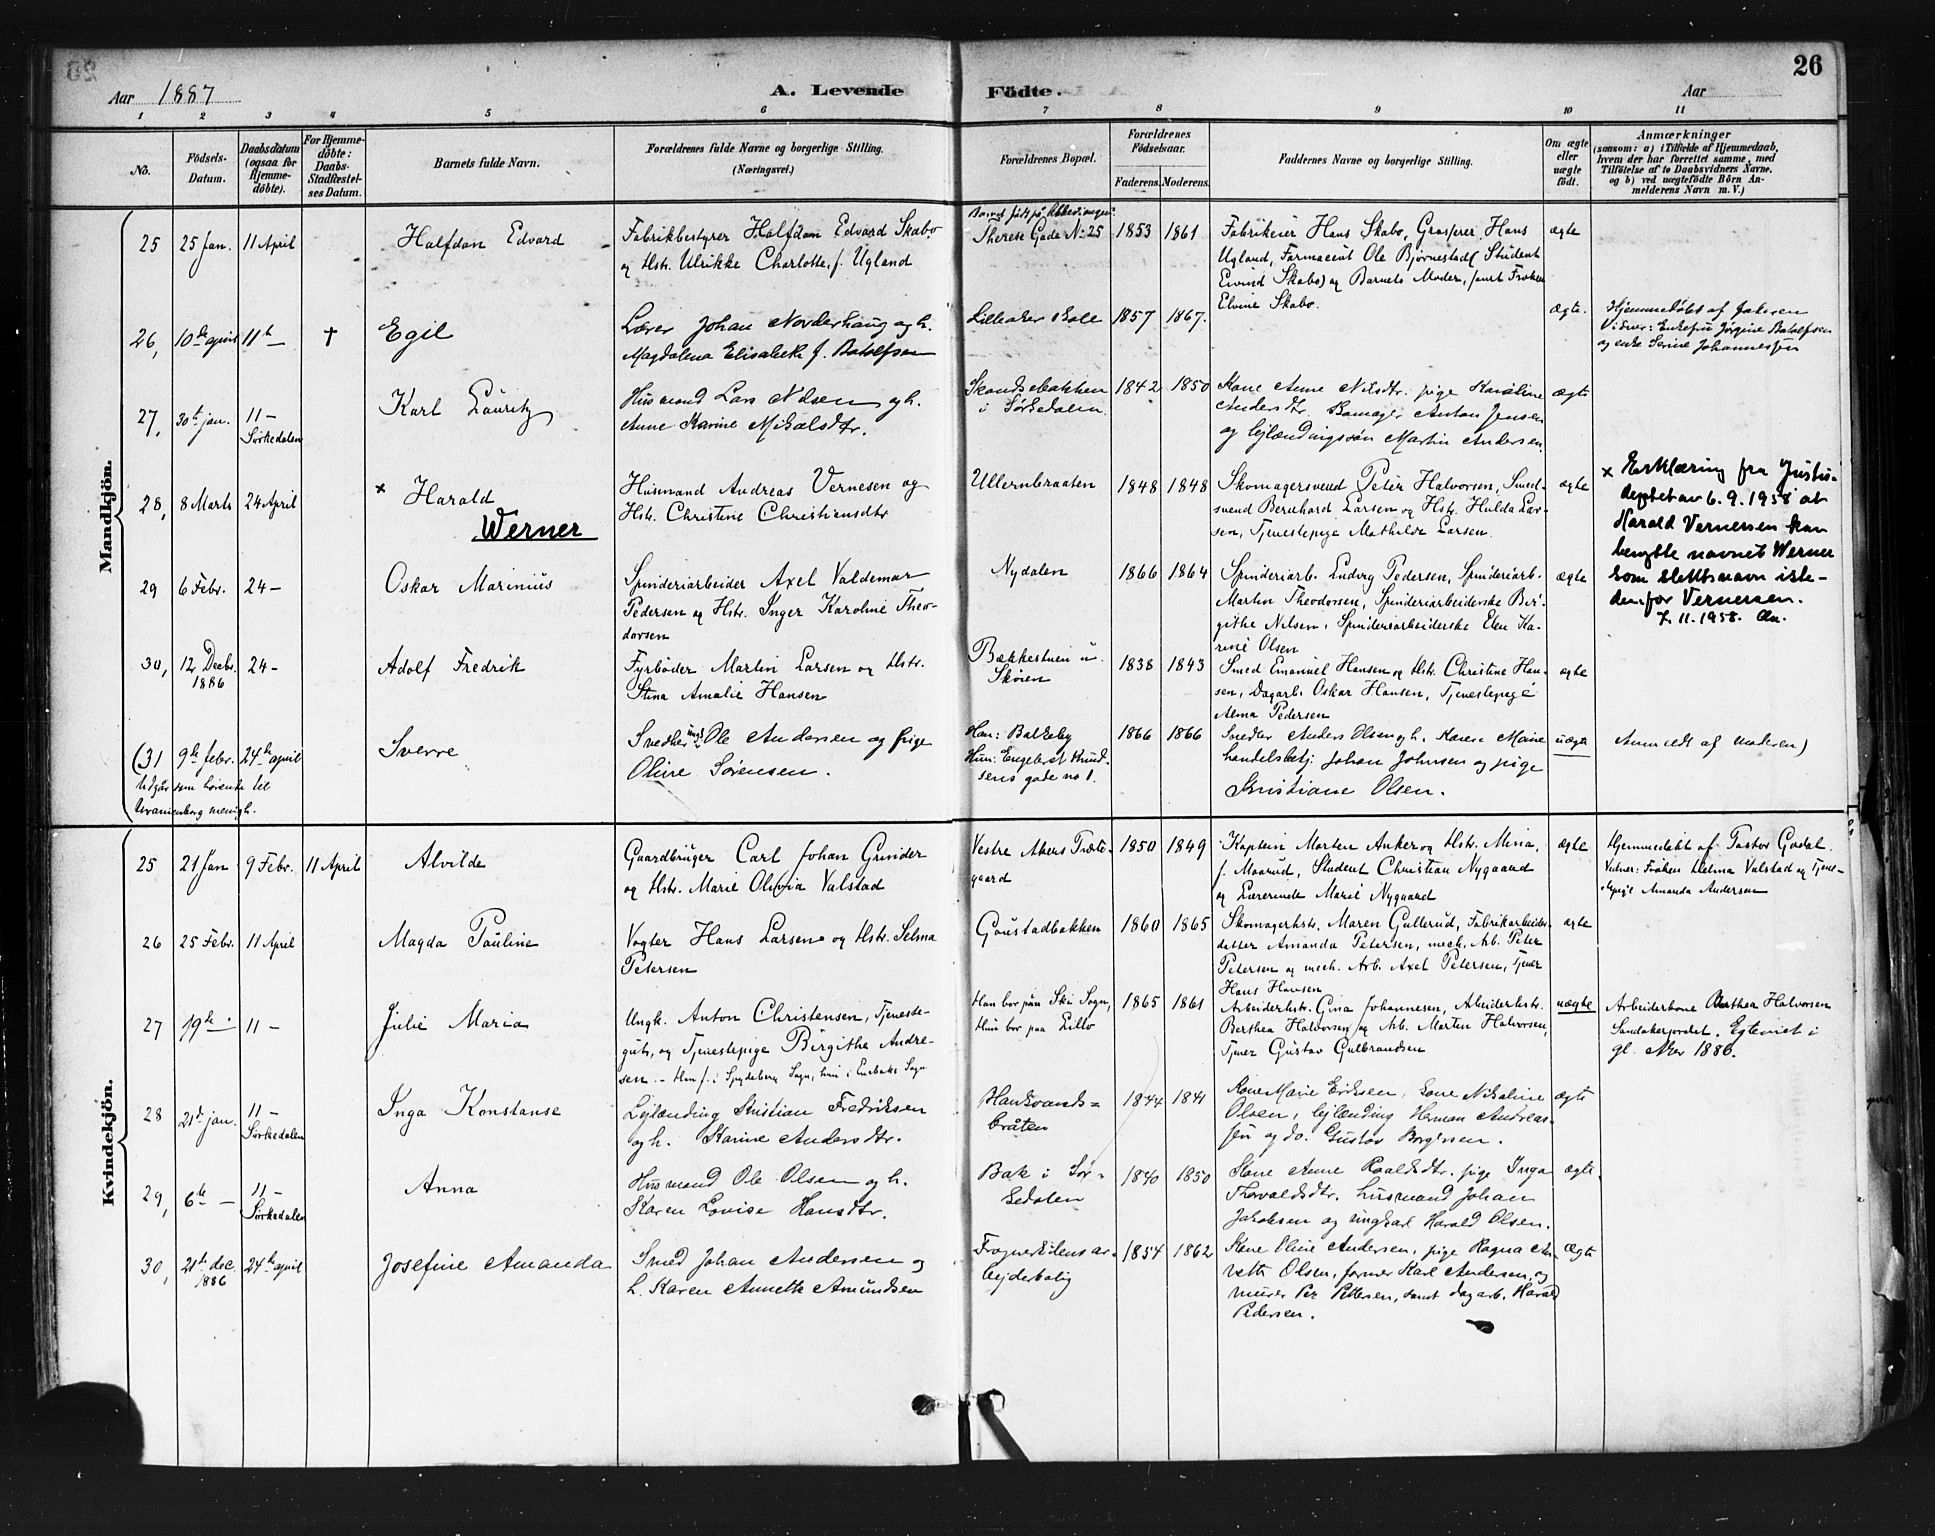 26
Aar 1887
A. Levende
Födte.
Aar
1 2 3 4 5 6 7 8 9 10 11
No.
Födsels-
Datum.
Daabsdatum
(ogsaa for
Hjemme-
döbte).
For Hjemme-
döbte:
Daabs-
Stadfæstel-
ses Datum.
Barnets fulde Navn.
Forældrenes fulde Navne og borgerlige Stilling.
(Næringsvei.)
Forældrenes Bopæl.
Forældrenes
Födselsaar.
Faderens. Moderens.
Faddernes Navne og borgerlige Stilling.
Om ægte
eller
uægte
födt.
Anmærkninger
(saasom: a) i Tilfælde af Hjemmedaab,
hvem der har forrettet samme, med
Tilföielse af to Daabsvidners Navne.
og b) ved uægtefödte Börn An-
melderens Navn m. V.)
Mandkjön.
25 25 Jan. 11 April
Halfdan Edvard
Fabrikbestyrer Halfdan Edvard Skabo
og Hstr. Ulrikke Charlotte, f. Ugland
Barnet født på
Therese Gade No 25
1853 1861
Fabrikeier Hans Skabo, Grosserer Hans
Ugland, Farmaceut Ole Bjørnestad (Student
Eivind Skabo) og Barnets Moder, samt Frøken
Elvine Skabo.
ægte
26, 10de april 11te — †
Egil
Lærer Johan Norderhaug og h.
Magdalena Elisabeth f. Batolfsen
Lilleaker skole
1857 1867.
ægte.
Hjemmedøbt af Faderen
Vidner: Enkefru Jørgine Batolfsen
og enke Serine Johannessen
27, 30te jan. 11 —
Sørkedalen
Karl Lauritz
Husmand Lars Nilsen og h.
Anne Karine Mikalsdtr.
Skandsebakken
i Sørkedalen
1842 1850
Kone Anne Nilsdtr. pige Karoline
Andersdtr. Bamager Anton Jensen
og lejlændingssøn Martin Andersen
ægte
28, 8 Marts 24 April
× Harald
Werner
Husmand Andreas Vernesen og
Hstr. Christine Christiansdtr
Ullernbraaten
1848 1848
Skomagersvend Peter Halvorsen, Smed-
svend Bernhard Larsen og Hstr. Hulda Lar-
sen, Tjenestepige Mathilde Larsen.
ægte
× Erklæring fra Justis-
deptet av 6.9.1958 at
Harald Vernersen kan
benytte navnet Werner
som slektsnavn iste-
denfor Vernersen.
7.11.1958.
29 6 Febr. 24 —
Oskar Marinius
Spinderiarbeider Axel Valdemar
Pedersen og Hstr. Inger Karoline Theo-
dorsen
Nydalen
1866 1864
Spinderiarb. Ludvig Pedersen, Spinderiarb.
Martin Theodorsen, Spinderiarbeiderske Bir-
githe Nilsen, Spinderiarbeiderske Elen Ka-
rine Olsen
ægte
30, 12 Decbr. 24 —
1886
Adolf Fredrik
Fyrbøder Martin Larsen og Hstr.
Stina Amalie Hansen
Bækkestuen u.
Skøien
1838 1843
Smed Emanuel Hansen og Hstr. Christine Han-
sen, Dagarb. Oskar Hansen, Tjenestepige
Alma Pedersen
ægte
(31 9de febr. 24de april
Udgår som hørende til
Uranienborg menigh.
Sverre
Snedker ungk Ole Andersen og pige
Oline Sørensen.
Han: Balkeby
Hun: Engebret Knud-
sens gade no 1.
1866 1866
Snedker Anders Olsen og h. Karen Marie
handelsbetj: Johan Johnsen og pige
Kristiane Olsen.
uægte
Anmeldt af moderen)
Kvindekjön.
25 21 Jan 9 Febr. 11 April
Alvilde
Gaardbruger Carl Johan Grinder
og Hstr. Marie Olivia Valstad
Vestre Akers Præste-
gaard
1850 1849
Kaptein Morten Anker og Hstr. Mina,
f. Maarud, Student Christian Nygaard
og Lærerinde Marie Nygaard
ægte
Hjemmedøbt af Pastor Gjedal.
Vidner: Frøken Helma Valstad og Tjene-
stepige Amanda Andersen
26 25 Febr. 11 April
Magda Pauline
Vogter Hans Larsen og Hstr. Selma
Petersen
Gaustadbakken
1860 1865
Skomagerhstr. Maren Gullerud, Fabrikarbeider-
datter Amanda Petersen, mech. Arb. Peter
Petersen og mech. Arb. Axel Petersen, Tjener
Hans Hansen
ægte
27 19de — 11 —
Julie Maria
Ungk. Anton Christensen, Tjeneste-
gut, og Tjenestepige Birgithe Andre-
sen. — Han f. i Spydeberg Sogn, hun i Enebak Sogn
Han bor paa Ski Sogn,
Hun bor paa Lillo
1865 1861
Arbeiderhstr. Gina Johannesen, Arbeiderhstr.
Berthea Halvorsen og Arb. Martin Halvorsen,
Tjener Gustav Gulbrandsen
uægte
Arbeiderkone Berthea Halvorsen
Sandakerjordet. Egteviet i
gl. Aker 1886.
28 21de jan. 11 —
Sørkedalen
Inga Konstanse
Lejlænding Kristian Fredriksen
og h. Karine Andersdtr.
Hankvands-
bråten
1844 1841
Kone Marie Eriksen, kone Nikoline
Olsen, lejlænding Herman Andreas-
sen og do. Gustav Borgersen.
ægte
29, 6te — 11 —
Sørkedalen
Anna
Husmand Ole Olsen og h.
Karen Lovise Hansdtr.
Bak i Sør-
kedalen
1840 1850
Kone Anne Roalsdtr. pige Inga
Thorvaldsdtr. husmand Johan
Jakobsen og ungkarl Harald Olsen.
ægte.
30, 21de dec. 24de april
1886
Josefine Amanda
Smed Johan Andersen og
h. Karen Annette Amundsen
Frognerkilens ar-
bejderbolig
1854 1862
Kone Oline Andersen, pige Ragna An-
nette Olsen, former Karl Andersen, og
murer Per Pettersen, samt dagarb. Harald
Pedersen.
Ægte